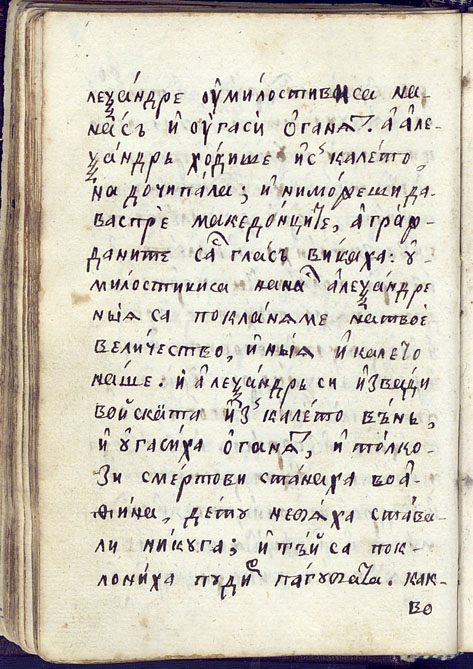 леѯа́ндре ᲂу҆милостивиса на-
на́съ и҆ ᲂу҆гаси̑ ѻ҆ганѧⷮ. а҆ а҆ле-
ѯа́ндрь хо́дише и҆зⸯ кале́то,
на до́чипала; и҆ ниможеши да-
васпрѐ македо́нцитⷷе, а҆ гра́ж-
даните саⷭ҇ гласъ вика́ха: ᲂу҆-
милостивиса нанаⷭ҇ а҆леѯа́ндре
ныѧ̀ са покла́нѧме на твоѐ
вели́чество, и҆ ныѧ̀ и҆ кале́то
на́ше. и҆ а҆леѯа́ндрь си и҆зва́ди
войска́та и҆зⸯ кале́то вънь,
и҆ ᲂу҆гаси́ха ѻ҆ганѧⷮ, и҆ то́лко-
зи сме́ртови ста́наха во а҆-
ѳи́на, де́ту непѧ́ха става-
ли ни́куга; и҆ ті́и са пок-
лони́ха пуди́ пагу́бата. как-
во